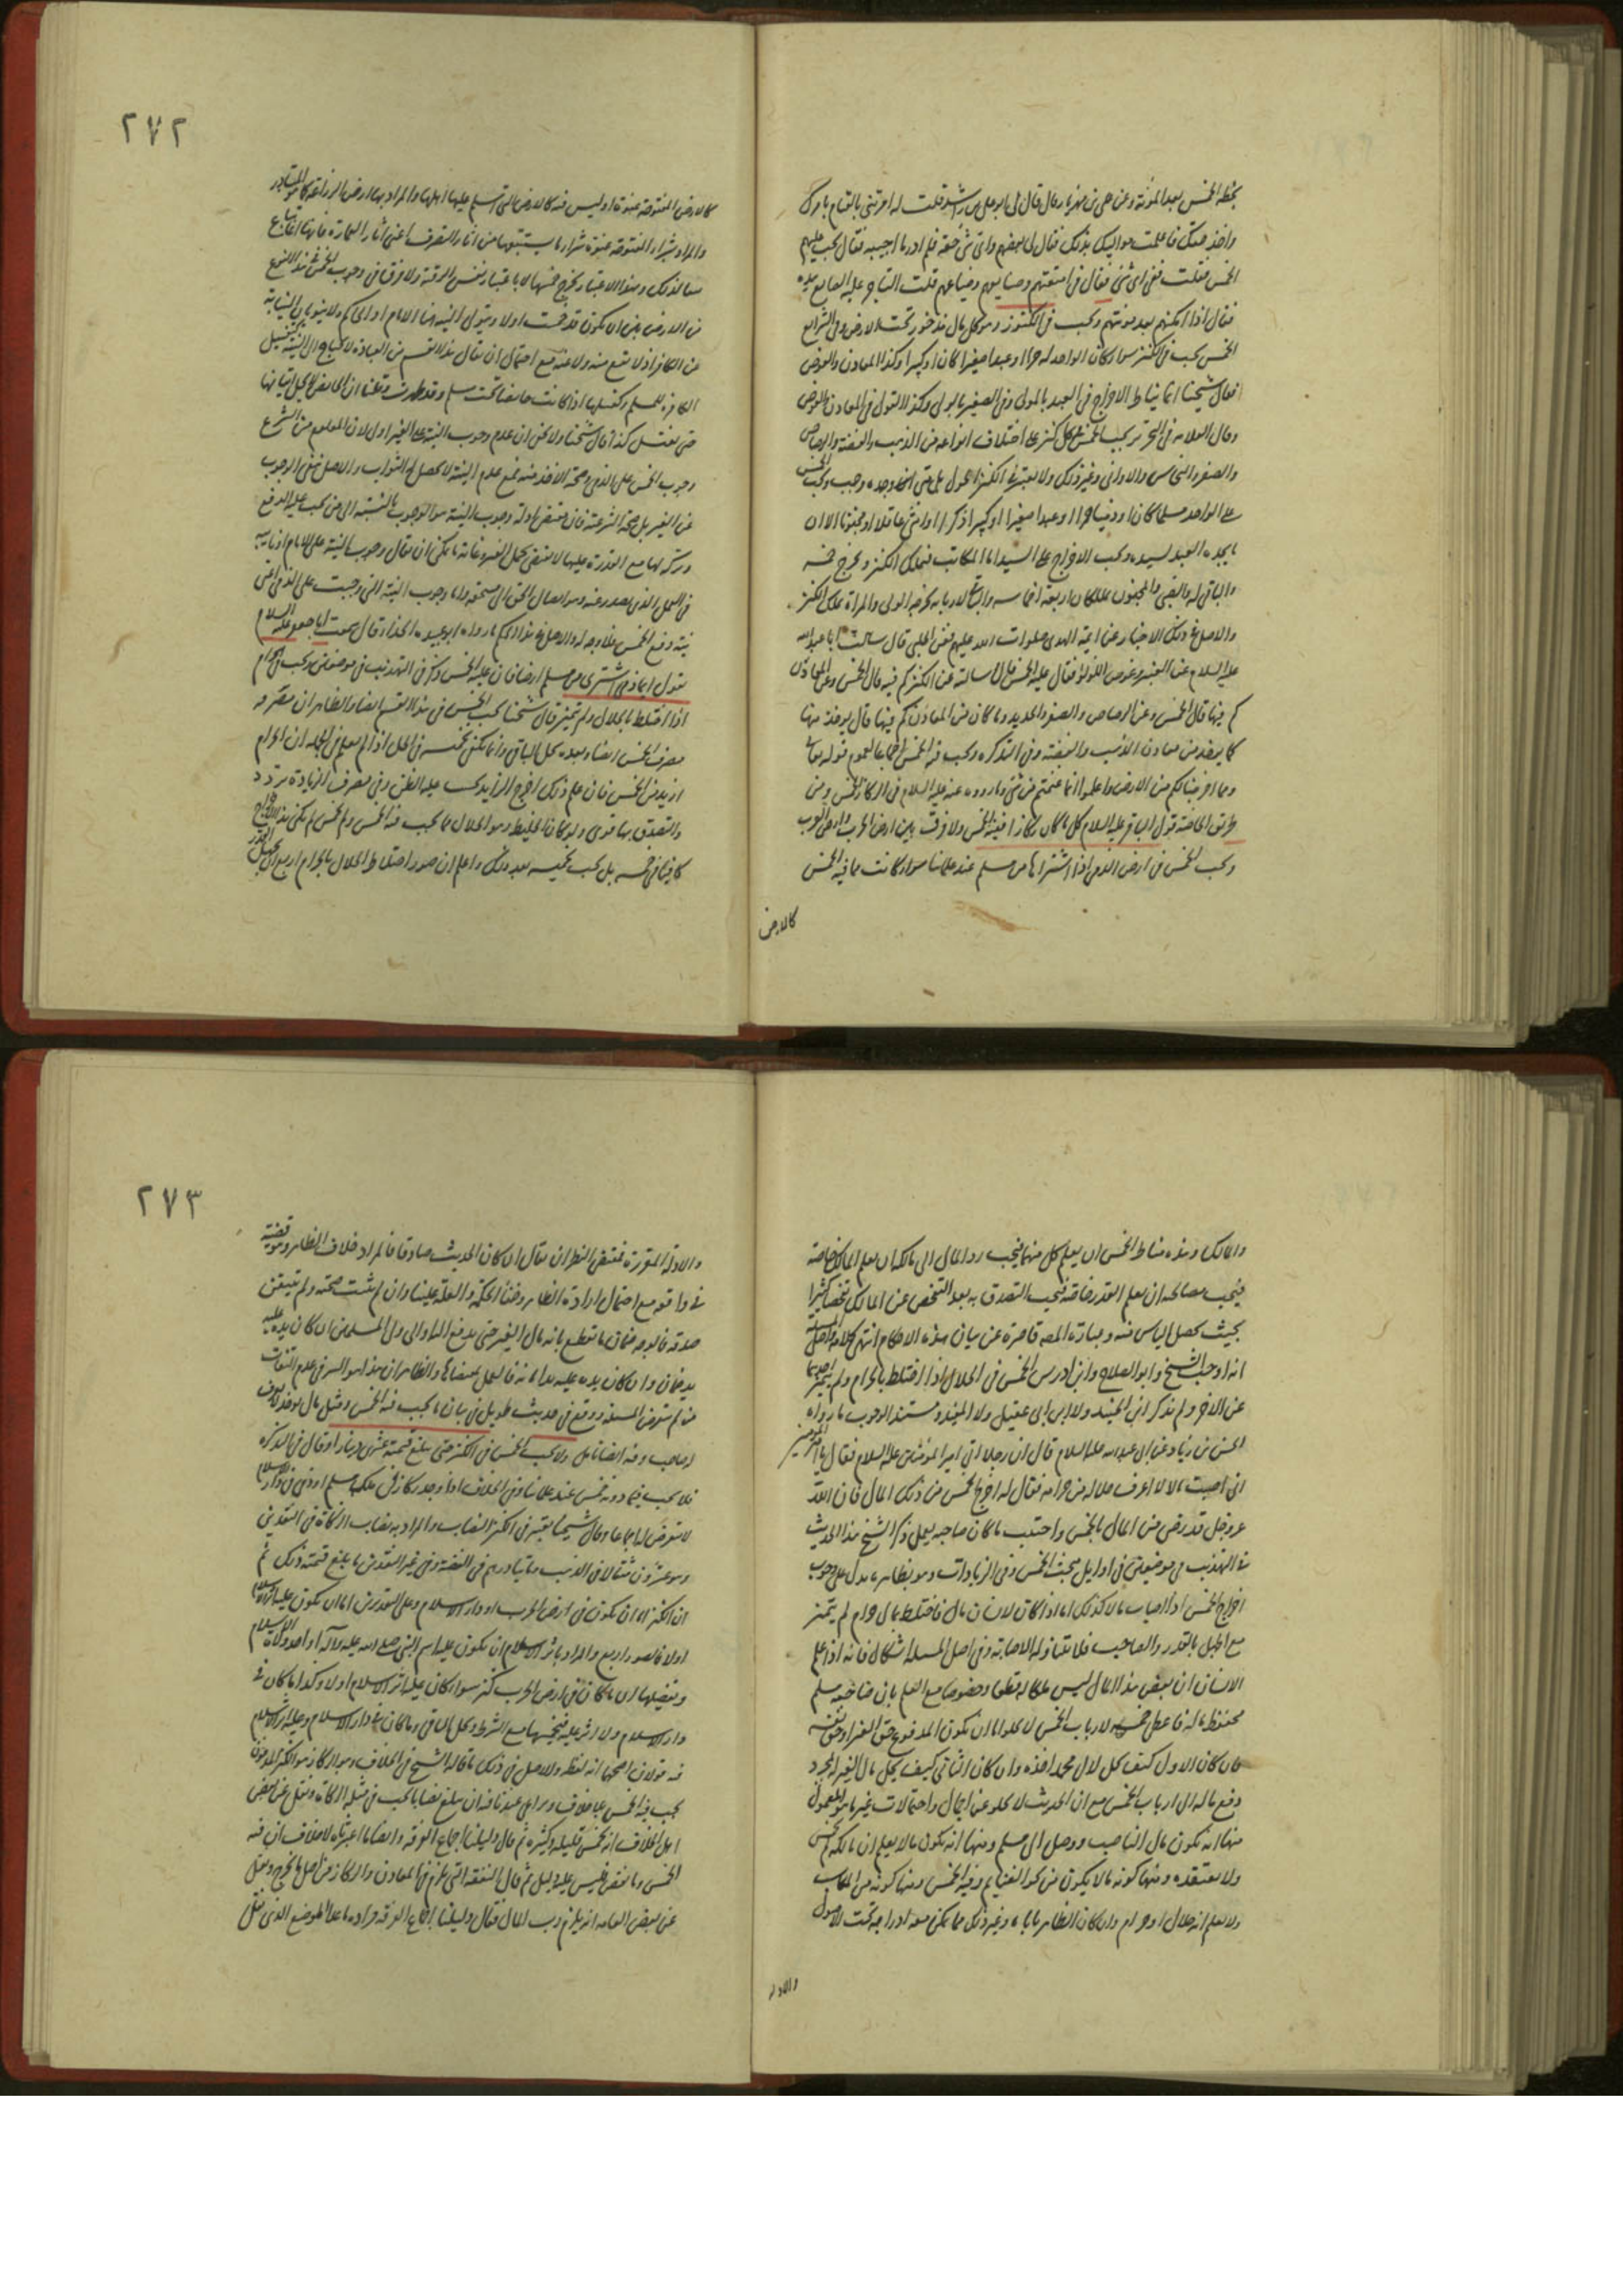 بحفظه الخمس بعد المؤنة وعن علي بن مهزيار قال قال لي ابو علي بن راشد قلت له امرتني بالقيام بامرك
واخذ حقك فاعلمت مواليك بذلك فقال لي بعضهم واي شيء حقه فلم ادر ما اجيبه فقال يجب عليهم
الخمس فقلت ففي اي شيء فقال في امتعتهم وصنايعهم وضياعهم قلت التاجر عليه والصانع بيده
فقال اذا امكنهم بعد مؤنتهم ويجب في الكنوز وهو كل مال مذخور تحت الارض وفي الشرايع
الخمس يجب في الكنز سواء كان الواجد له حرا او عبدا صغيرا كان او كبيرا وكذا المعادن والغوص
فقال شيخنا انما يناط الاخراج في العبد بالمولى وفي الصغير بالولي وكذلك القول في المعادن والغوص
وقال العلامة في التحرير يجب الخمس في كل كنز على اختلاف انواعه من الذهب والفضة والرصاص
والصفر والنحاس والاواني وغير ذلك ولا يعتبر في الكنز الحول بل متى وجده وجب ويجب الخمس
على الواجد مسلما كان او ذميا حرا او عبدا صغيرا او كبيرا ذكرا او انثى عاقلا او مجنونا الا ان
ما يجده العبد لسيده ويجب الاخراج على السيد اما المكاتب فيملك الكنز ويخرج خمسه
والباقي له والصبي والمجنون يملكان اربعة اخماسه والباقي لاربابه يخرجه الولي والمراة تملك الكنز
والاصل في ذلك الاخبار عن ائمة الهدى صلوات الله عليهم فعن الحلبي قال سالت ابا عبد الله
عليه السلام عن العنبر وغوص اللؤلؤ فقال عليه الخمس قال وسالته عن الكنز كم فيه قال الخمس وعن المعادن
كم فيها قال الخمس وعن الرصاص والصفر والحديد وما كان من المعادن كم فيها قال يؤخذ منها
كما يؤخذ من معادن الذهب والفضة وفي التذكرة ويجب فيه الخمس اجماعا لعموم قوله تعالى
ومما اخرجنا لكم من الارض واعلموا انما غنمتم من شيء وما رووه عنه عليه السلام في الركاز الخمس ومن
طريق الخاصة قول الباقر عليه السلام كل ما كان ركازا ففيه الخمس ولا فرق بين ارض الحرب وارض العرب
ويجب الخمس في ارض الذمي اذا اشتراها من مسلم عند علمائنا سواء كانت مما فيه الخمس
كالارض
٢٧٢
كالارض المفتوحة عنوة او ليس فيه كالارض التي اسلم عليها اهلها والمراد بها ارض الزراعة كما هو المتبادر
والمراد بشراء المفتوحة عنوة شراء ما يستتبعها من اثار التصرف اعني اثار العمارة فانها تباع
تبعا لذلك وبهذا الاعتبار يخرج خمسها لا باعتبار نفس الرقبة ولا فرق في وجوب الخمس في هذا النوع
من الارض بين ان يكون قد خمست اولا ويتولى النية هنا الامام او الحاكم ولا ينويان النيابة
عن الكافر
الكافرة للمسلم وكغسلها اذا كانت حايضا تحت مسلم وقد طهرت وقلنا ان الحايض لا يحل اتيانها
حتى تغتسل كذا قال شيخنا ولا يخفى ان عدم وجوب النية على الغير اولى لان المعلوم من الشرع
وجوب الخمس على الذمي وصحة الاخذ منه نعم عدم النية لا يحصل له الثواب والاصل نفي الوجوب
عن الغير بل صحة الشرعية فان مقتضى ادلة وجوب النية هو الوجوب بالنسبة الى من يجب عليه الدفع
وتركه لها مع القدرة عليها لا يقتضي تحمل الغير وغاية ما يمكن ان يقال وجوب النية على الامام او نايبه
في العمل الذي يصدر عنه وهو ايصال الحق الى مستحقه واما وجوب النية التي وجبت على الذمي اعني
نية دفع الخمس فلا وجه له والاصل في هذا الحكم ما رواه ابو عبيدة الحذاء قال سمعت ابا جعفر عليه السلام
يقول ايما ذمي اشترى من مسلم ارضا فان عليه الخمس ذكره في التهذيب في موضعين ويجب في الحرام
اذا اختلط بالحلال ولم يتميز قال شيخنا يجب الخمس في هذا القسم ايضا والظاهر ان مصرفه
مصرف الخمس ايضا وبعده يحل الباقي وانما يكفي تخميسه في الحل اذا لم يعلم في الجملة ان الحرام
ازيد من الخمس فان علم ذلك اخرج الزايد بحسب غلبة الظن وفي مصرف الزيادة تردد
والتصدق بها قوي ولو كان الخليط وهو الحلال مما يجب فيه الخمس ولم يخمس لم يكن هذا الاخراج
كافيا في خمسه بل يجب تخميسه بعد ذلك واعلم ان صور اختلاط الحلال بالحرام اربع ان يجهل القدر
والمالك وهذه مناط الخمس ان يعلم كل منهما فيجب رد المال الى مالكه ان يعلم المالك خاصة
فيجب مصالحته ان يعلم القدر خاصة فيجب التصدق به بعد التفحص عن المالك تفحصا كثيرا
بحيث يحصل الياس منه وعبارة المصنف قاصرة عن بيان هذه الاحكام انتهى كلامه واصل المسئلة
انه اوجب الشيخ وابو الصلاح وابن ادريس الخمس في الحلال اذا اختلط بالحرام ولم يتميز احدهما
عن الاخر ولم يذكر ابن الجنيد ولا ابن ابي عقيل ولا المفيد ومستند الوجوب ما رواه
الحسن بن زياد عن ابي عبد الله عليه السلام قال ان رجلا اتى امير المؤمنين عليه السلام فقال يا امير المؤمنين
اني اصبت مالا لا اعرف حلاله من حرامه فقال له اخرج الخمس من ذلك المال فان الله
عز وجل قد رضي من المال بالخمس واجتنب ما كان صاحبه يعمل ذكر الشيخ هذا الحديث
في التهذيب في موضعين في اوايل مبحث الخمس وفي الزيادات وهو بظاهره يدل على وجوب
اخراج الخمس اذا اصاب مالا كذلك اما اذا كان لانسان مال فاختلط بمال حرام لم يتميز
مع الجهل بالقدر والصاحب فلا يتناوله الاصابة وفي اصل المسئلة اشكال فانه اذا علم
الانسان ان بعض هذا المال ليس ملكا له قطعا وخصوصا مع العلم بان صاحبه مسلم
محفوظ ماله فاعطى خمسه لارباب الخمس لا يخلو اما ان يكون المدفوع حق الغير او حق نفسه
فان كان الاول كيف يحل لال محمد اخذه وان كان الثاني كيف يحل مال الغير لمجرد
دفع ماله الى ارباب الخمس مع ان الحديث لا يخلو عن اجمال واحتمالات غير ما هو المعمول
منها انه يكون مال الناصب ووصل الى مسلم ومنها انه يكون مالا يعلم ان مالكه لم يخمس
ولا يعتقده ومنها كونه مالا يكون من نحو الغنايم وفيه الخمس ومنها كونه من المكاسب
ولا يعلم انه حلال او حرام وان كان الظاهر ياباه وغير ذلك مما يمكن معه ادراجه تحت الاصول
والادلة
٢٧٣
والادلة المقررة فمقتضى النظر ان يقال ان كان الحديث صادقا فالمراد خلاف الظاهر وهو قضية
في واقعة مع احتمال ارادة الظاهر وخفاء الحكمة والعلة علينا وان لم يثبت صحته ولم يتيقن
صدقه فالوجه ضمان ما يقطع بانه مال الغير حتى يدفع اليه او الى ولي المسلمين ان كان يده عليه
يد ضمان وان كان يده عليه يد امانة فالعمل بمقتضاها والظاهر ان هذا هو السر في عدم التفات
من لم يتعرض المسئلة ووقع في حديث طويل في بيان ما يجب فيه الخمس ومثل مال يؤخذ لا يعرف
له صاحب وفيه ايضا تامل ولا يجب الخمس في الكنز حتى يبلغ قيمته عشرين دينارا وقال في التذكرة
فلا يجب فيما دونه خمس عند علمائنا وفي الخلاف اذا وجد ركاز في ملك مسلم او ذمي في دار الاسلام
لا يتعرض له اجماعا وقال شيخنا يعتبر في الكنز النصاب والمراد به نصاب الزكاة في النقدين
وهو عشرون مثقالا في الذهب ومايتا درهم في الفضة وفي غير النقدين ما بلغ قيمته ذلك ثم
ان الكنز اما ان يكون في ارض الحرب او دار الاسلام وعلى التقديرين اما ان يكون عليه اثر الاسلام
اولا فالصور اربع والمراد باثر الاسلام ان يكون عليه اسم النبي صلى الله عليه وآله او احد ولاة الاسلام
وتفصيلها ان ما كان في ارض الحرب كنز سواء كان عليه اثر الاسلام اولا وكذا ما كان في
دار الاسلام ولا اثر عليه فيخمسها مع الشرط ويحل الباقي وما كان في دار الاسلام وعليه اثر الاسلام
فيه قولان اصحهما انه لقطة والاصل في ذلك ما قاله الشيخ في الخلاف وهو الركاز هو الكنز المدفون
يجب فيه الخمس بلا خلاف ويراعى عندنا فيه ان يبلغ نصابا يجب في مثله الزكاة ونقل عن بعض
اهل الخلاف انه يخمس قليله وكثيره ثم قال دليلنا اجماع الفرقة وايضا ما اعتبرناه لا خلاف ان فيه
الخمس وما نقص فليس عليه دليل ثم قال النفقة التي تلزم في المعادن والركاز من اصل ما يخرج ونقل
عن بعض العامة انه يلزم رب المال فقال دليلنا اجماع الفرقة مراده ما عدا الموضع الذي نقل